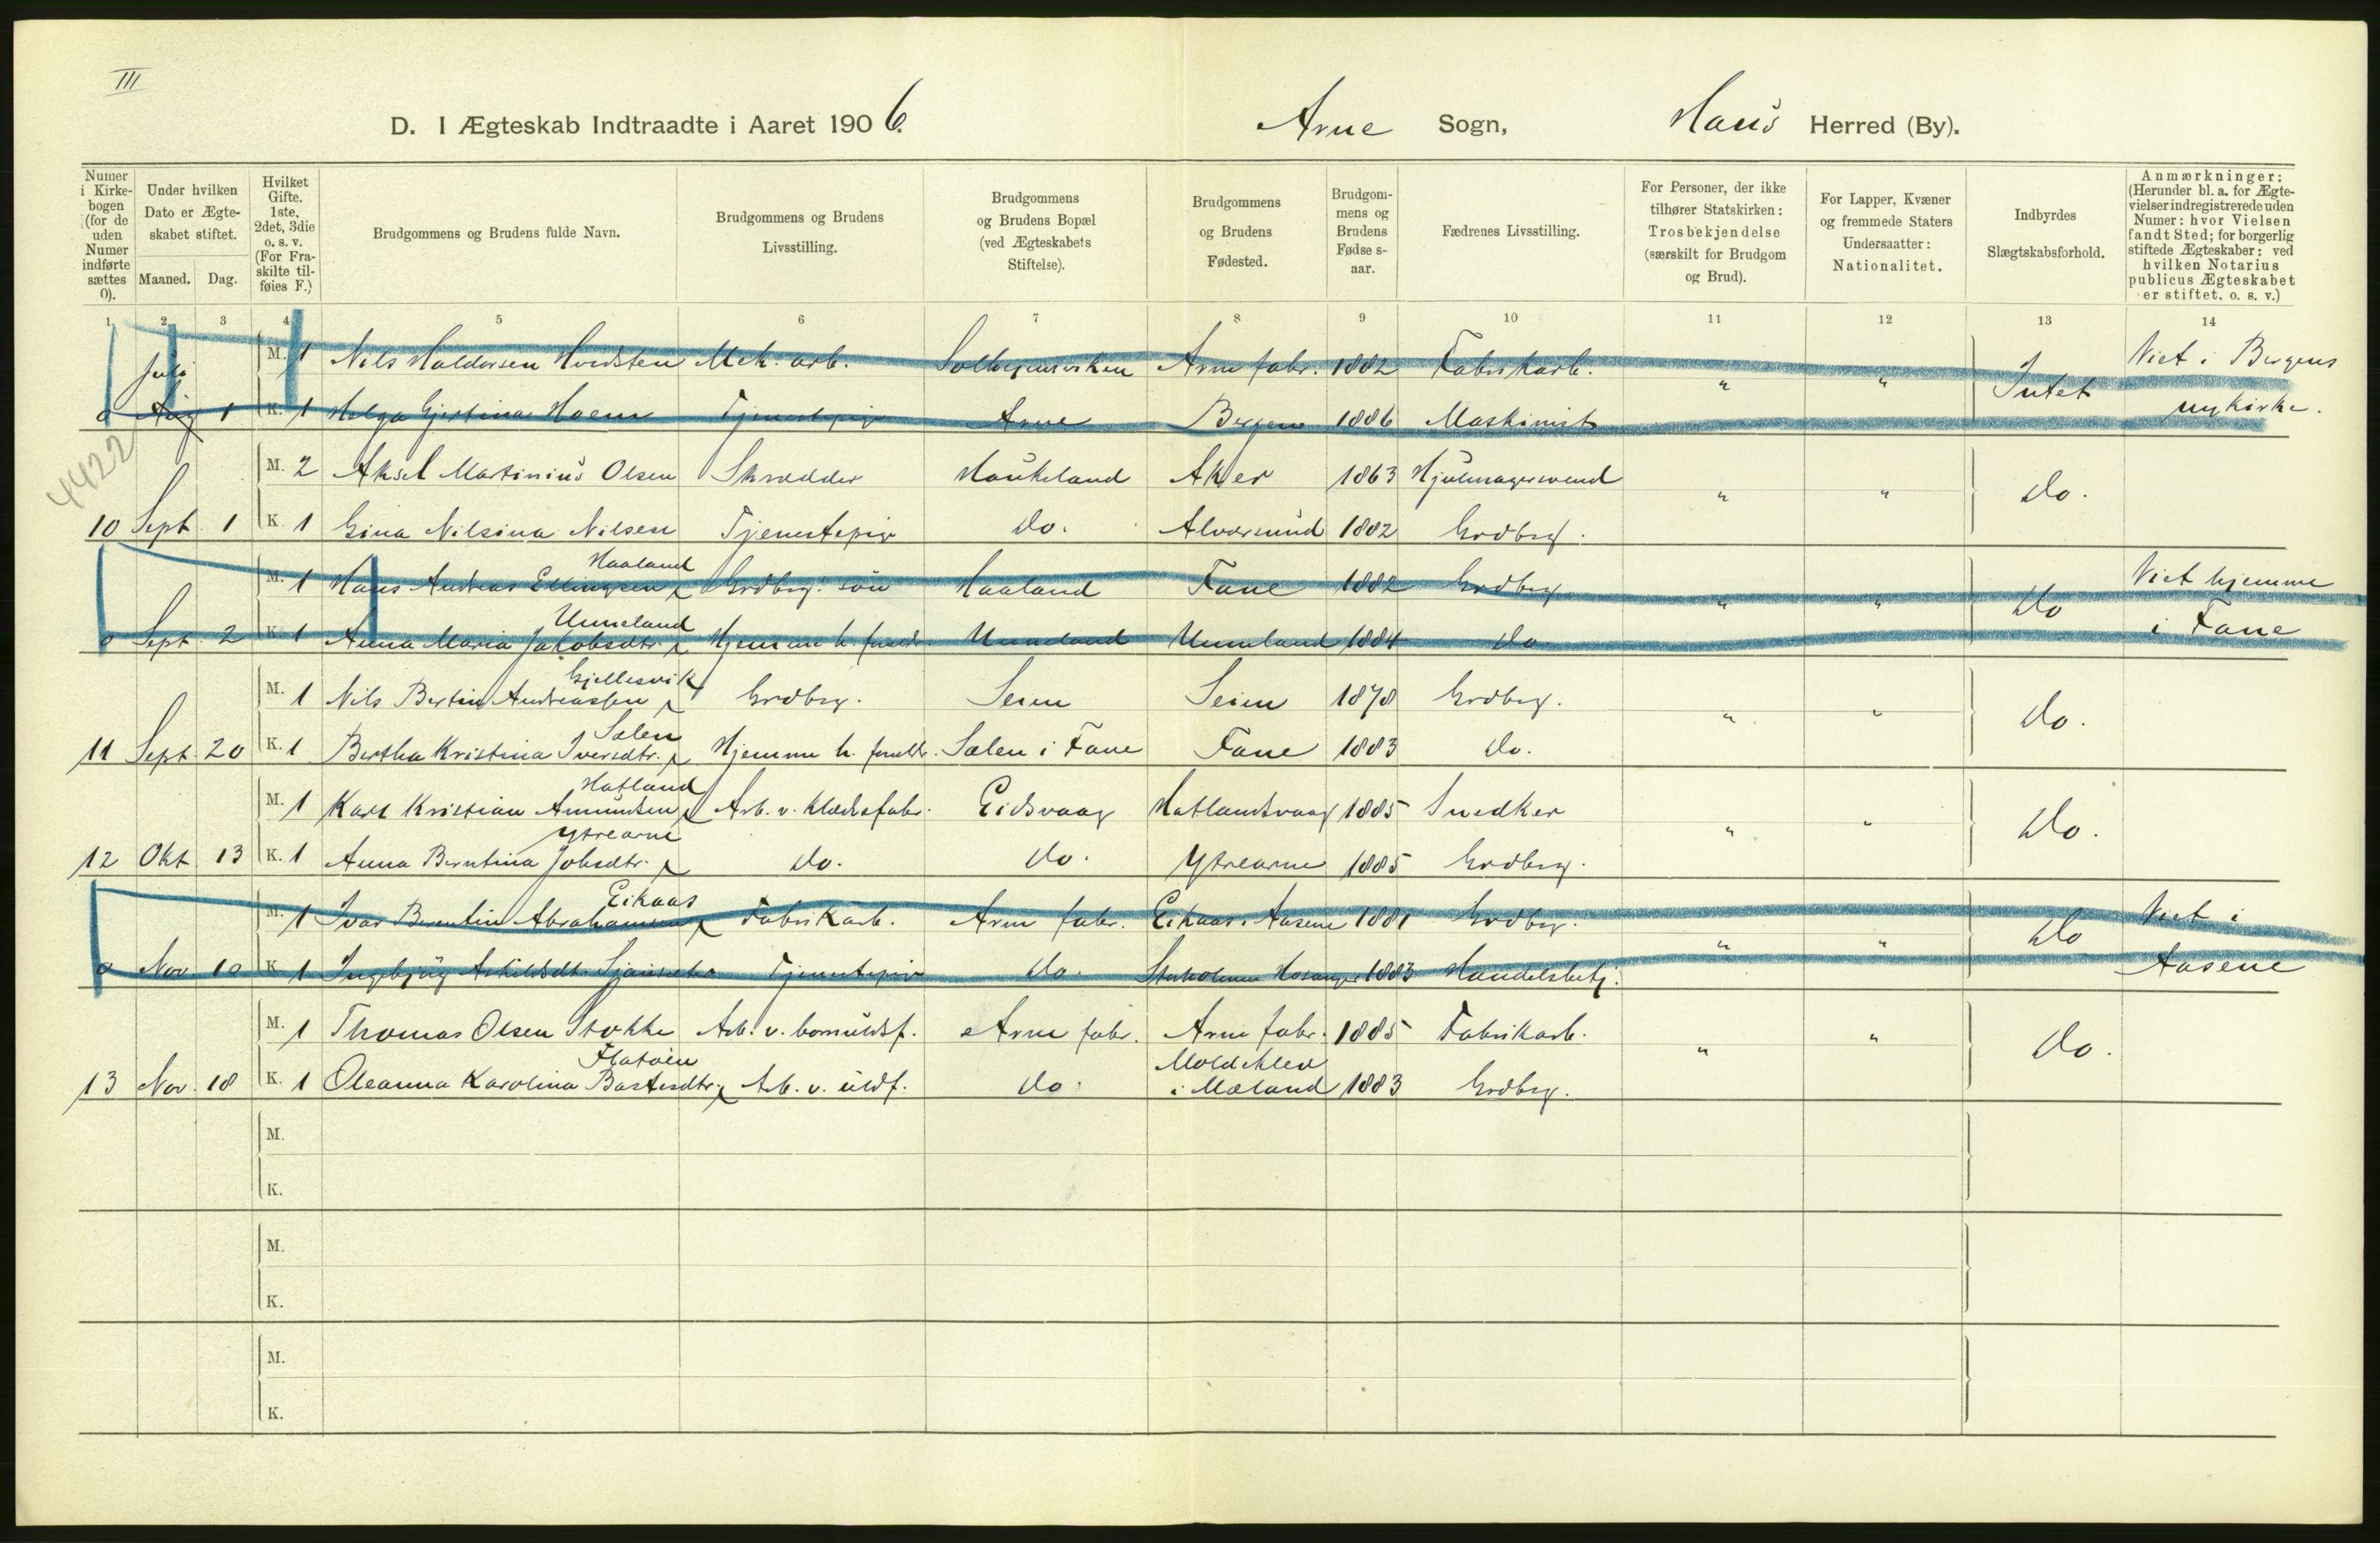 III
D. I Ægteskab Indtraadte i Aaret 1906. Arne Sogn, Haus Herred (By).
Numer i Kirkebogen (for de uden Numer indførte sættes 0).
Under hvilken Dato er Ægteskabet stiftet.
Maaned. Dag.
Hvilket Gifte. 1ste, 2det, 3die o. s. v. (For Fraskilte tilføies F.)
Brudgommens og Brudens fulde Navn.
Brudgommens og Brudens Livsstilling.
Brudgommens og Brudens Bopæl (ved Ægteskabets Stiftelse).
Brudgommens og Brudens Fødested.
Brudgommens og Brudens Fødselsaar.
Fædrenes Livsstilling.
For Personer, der ikke tilhører Statskirken: Trosbekjendelse (særskilt for Brudgom og Brud).
For Lapper, Kvæner og fremmede Staters Undersaatter: Nationalitet.
Indbyrdes Slægtskabsforhold.
Anmærkninger: (Herunder bl. a. for Ægtevielser indregistrerede uden Numer: hvor Vielsen fandt Sted; for borgerlig stiftede Ægteskaber: ved hvilken Notarius publicus Ægteskabet er stiftet, o. s. v.)
1 2 3 4 5 6 7 8 9 10 11 12 13 14
Juli M. 1 Nils Haldorsen Mek. arb. Arne fabr. 1882 Fabrikarb. " " Intet Viet i Bergens
0 Aug 1 K. 1 Helga Gjertina Tjenestepige Arne Bergen 1886 Maskinist nykirke.
4422
M. 2 Aksel Martinius Olsen Skrædder Haukeland Aker 1863 Hjulmagersvend " " do.
10 Sept. 1 K. 1 Gina Nilsina Nilsen Tjenestepige do. Alversund 1882 Grdbrg.
Haaland
M. 1 Hans Andreas Ellingsen Grdbrg. søn Haaland Fane 1882 Grdbrg. " " do Viet hjemme
Unneland
0 Sept. 2 K. 1 Anna Maria Jakobsdtr. Hjemme h. foreldr. Unneland Unneland 1884 do i Fane
Gjellesvik
M. 1 Nils Bertin Andreassen Grdbrg. Seim Seim 1878 Grdbrg. " " do.
Sælen
11 Sept. 20 K. 1 Bertha Kristina Iversdtr. Hjemme h. foreldr. Sælen i Fane Fane 1883 do.
Hatland
M. 1 Karl Kristian Amundsen Arb. v. klædesfabr. Eidsvaag Hatlandsvaag 1885 Snedker " " do.
Ytrearne
12 Okt. 13 K. 1 Anna Berntina Johsdtr. do. do. Ytrearne 1885 Grdbrg.
Eikaas
M. 1 Ivar Berentin Abrahamsen Fabrikarb. Arne fabr. Eikaas i Aasene 1881 Grdbrg. " " do Viet i
0 Nov. 10 K. 1 Tjenestepige do. 1883 Handelsbetj. Aasene
M. 1 Thomas Olsen Stokke Arb. v. bomuldsf. Arne fabr. Arne fabr. 1885 Fabrikarb. " " do.
Flatøen Moldeklev
13 Nov. 18 K. 1 Oleanna Karolina Bastesdtr. Arb. v. uldf. do. i Mæland 1883 Grdbrg.
M.
K.
M.
K.
M.
K.